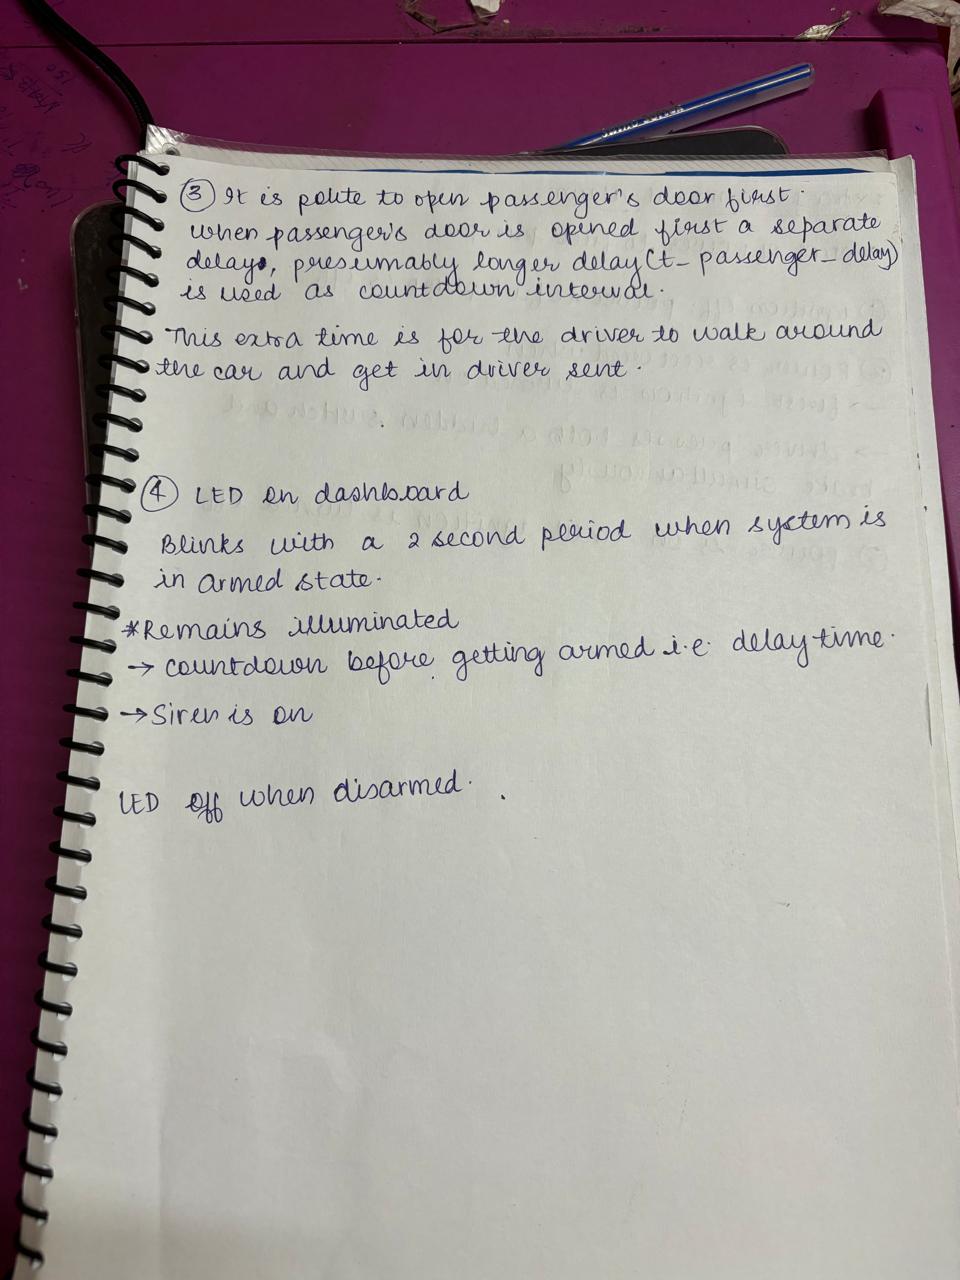 ③ It is polite to open passenger's door first.
when passenger's door is opened first a separate
delay, presumably longer delay (t_passenger_delay)
is used as countdown interval.
This extra time is for the driver to walk around
the car and get in driver sent.
④ LED on dashboard
Blinks with a 2 second period when system is
in armed state.
*Remains illuminated
→ countdown before getting armed i.e. delay time.
→ Siren is on
LED off when disarmed.